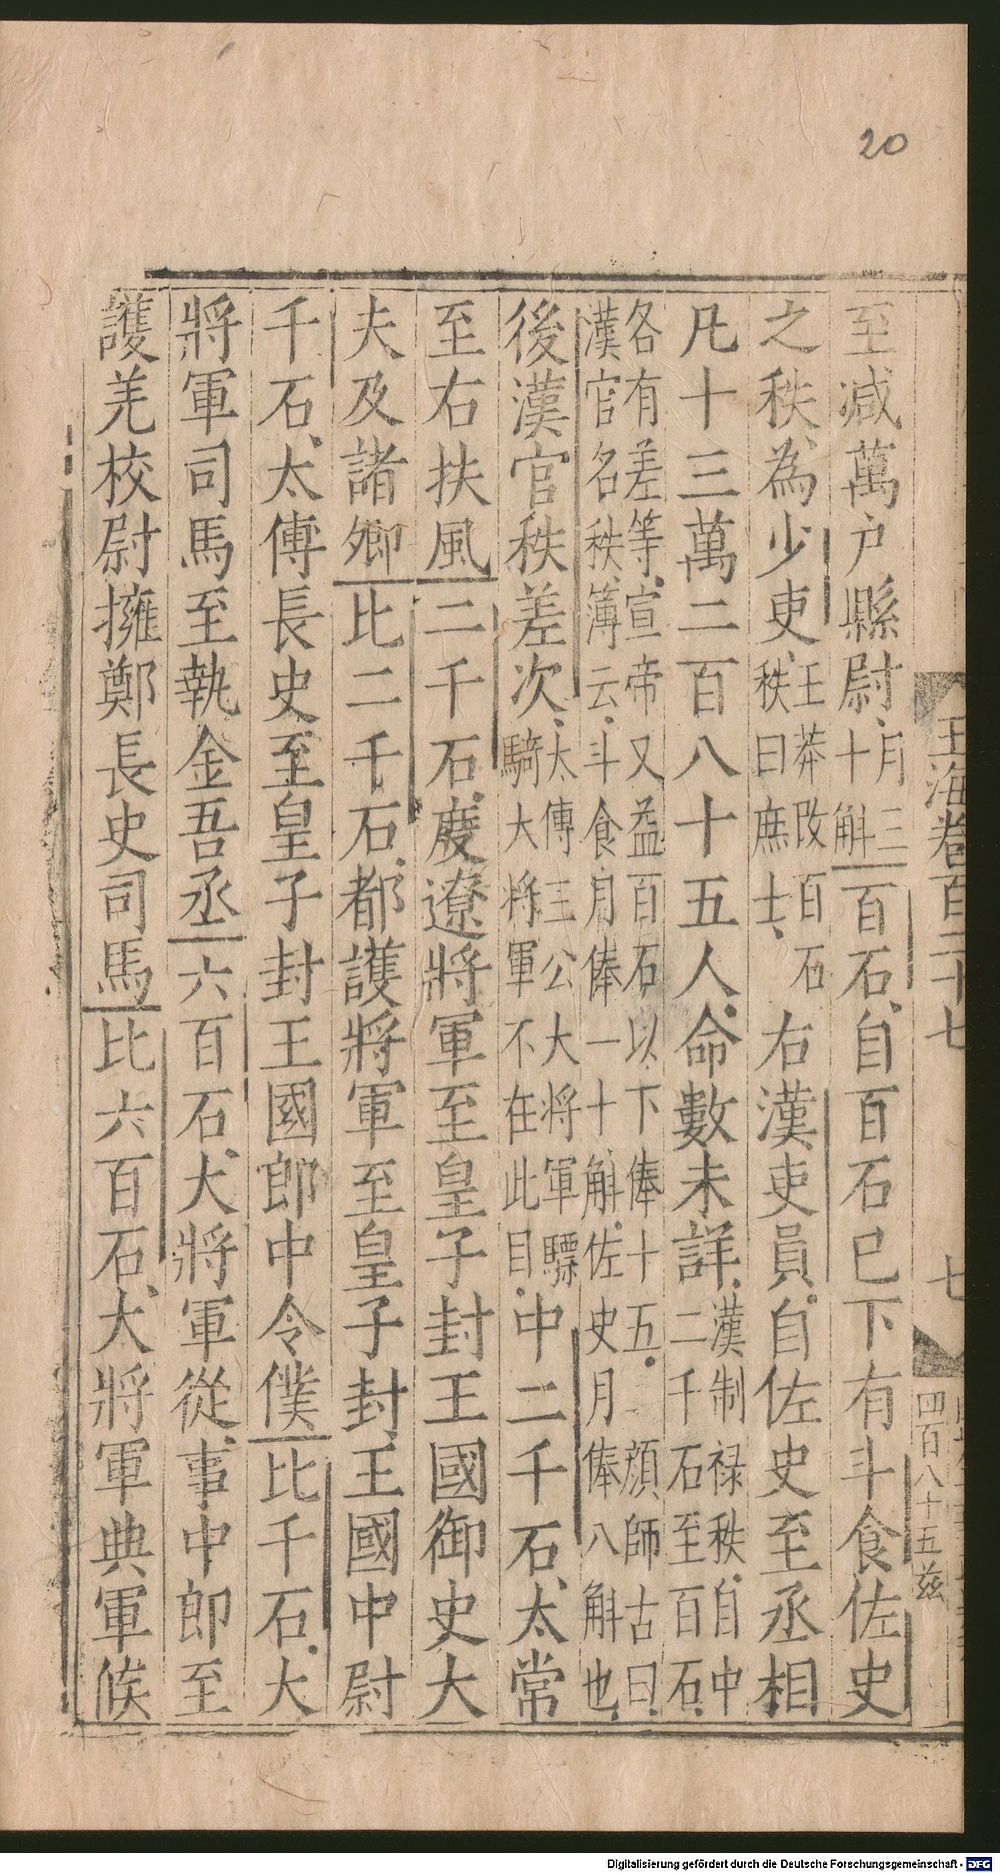 20
玉海卷百二十七
七
四百八十五茲
至減萬户縣尉月三十斛百石自百石已下有斗食佐史
之秩為少吏王莽改百石秩曰庶士右漢吏員自佐史至丞相
凡十三萬二百八十五人命數未詳漢制禄秩自中二千石至百石
各有差等宣帝又益百石以下俸十五顔師古曰
漢官名秩簿云斗食月俸一十斛佐史月俸八斛也
後漢官秩差次太傅三公大将軍驃騎大将軍不在此目中二千石太常
至右扶風二千石度遼將軍至皇子封王國御史大
夫及諸卿比二千石都護將軍至皇子封王國中尉
千石太傅長史至皇子封王國郎中令僕比千石大
將軍司馬至執金吾丞六百石大將軍從事中郎至
護羌校尉擁鄭長史司馬比六百石大將軍典軍候
Digitalisierung gefördert durch die Deutsche Forschungsgemeinschaft - DFG